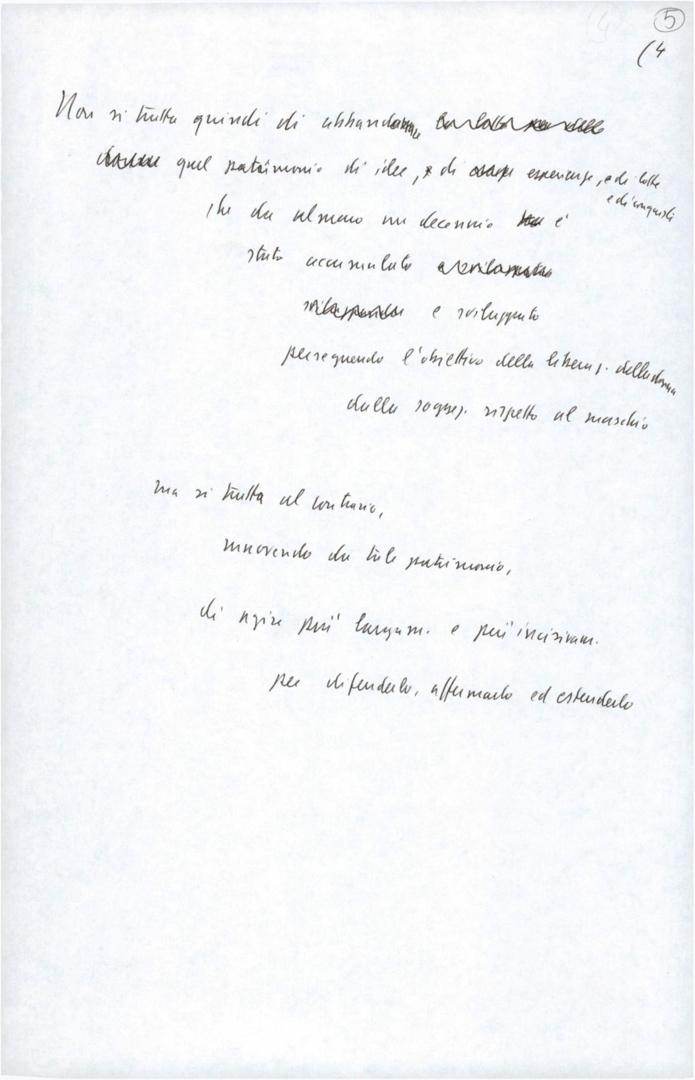 5
(4
Non si tratta quindi di abbandonare
quel patrimonio di idee, e di esperienze, e di lotte
e di conquiste
che da almeno un decennio è
stato accumulato
e sviluppato
perseguendo l'obiettivo della liberaz. della donna
dalla soggez. rispetto al maschio
ma si tratta al contrario,
muovendo da tale patrimonio,
di agire più largam. e più incisivam.
per difenderlo, affermarlo ed estenderlo